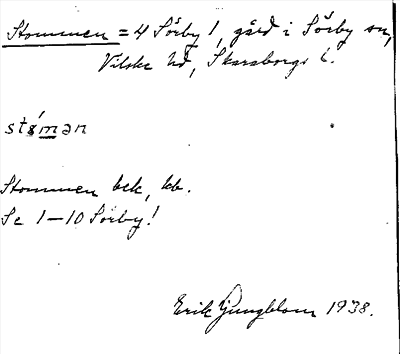 Stommen = 4 Sörby 1, gård i Sörby sn,
Vilske hd, Skaraborgs l.
stǿman
Stommen bek, kb.
Se 1–10 Sörby!
Erik Ljungblom 1938.